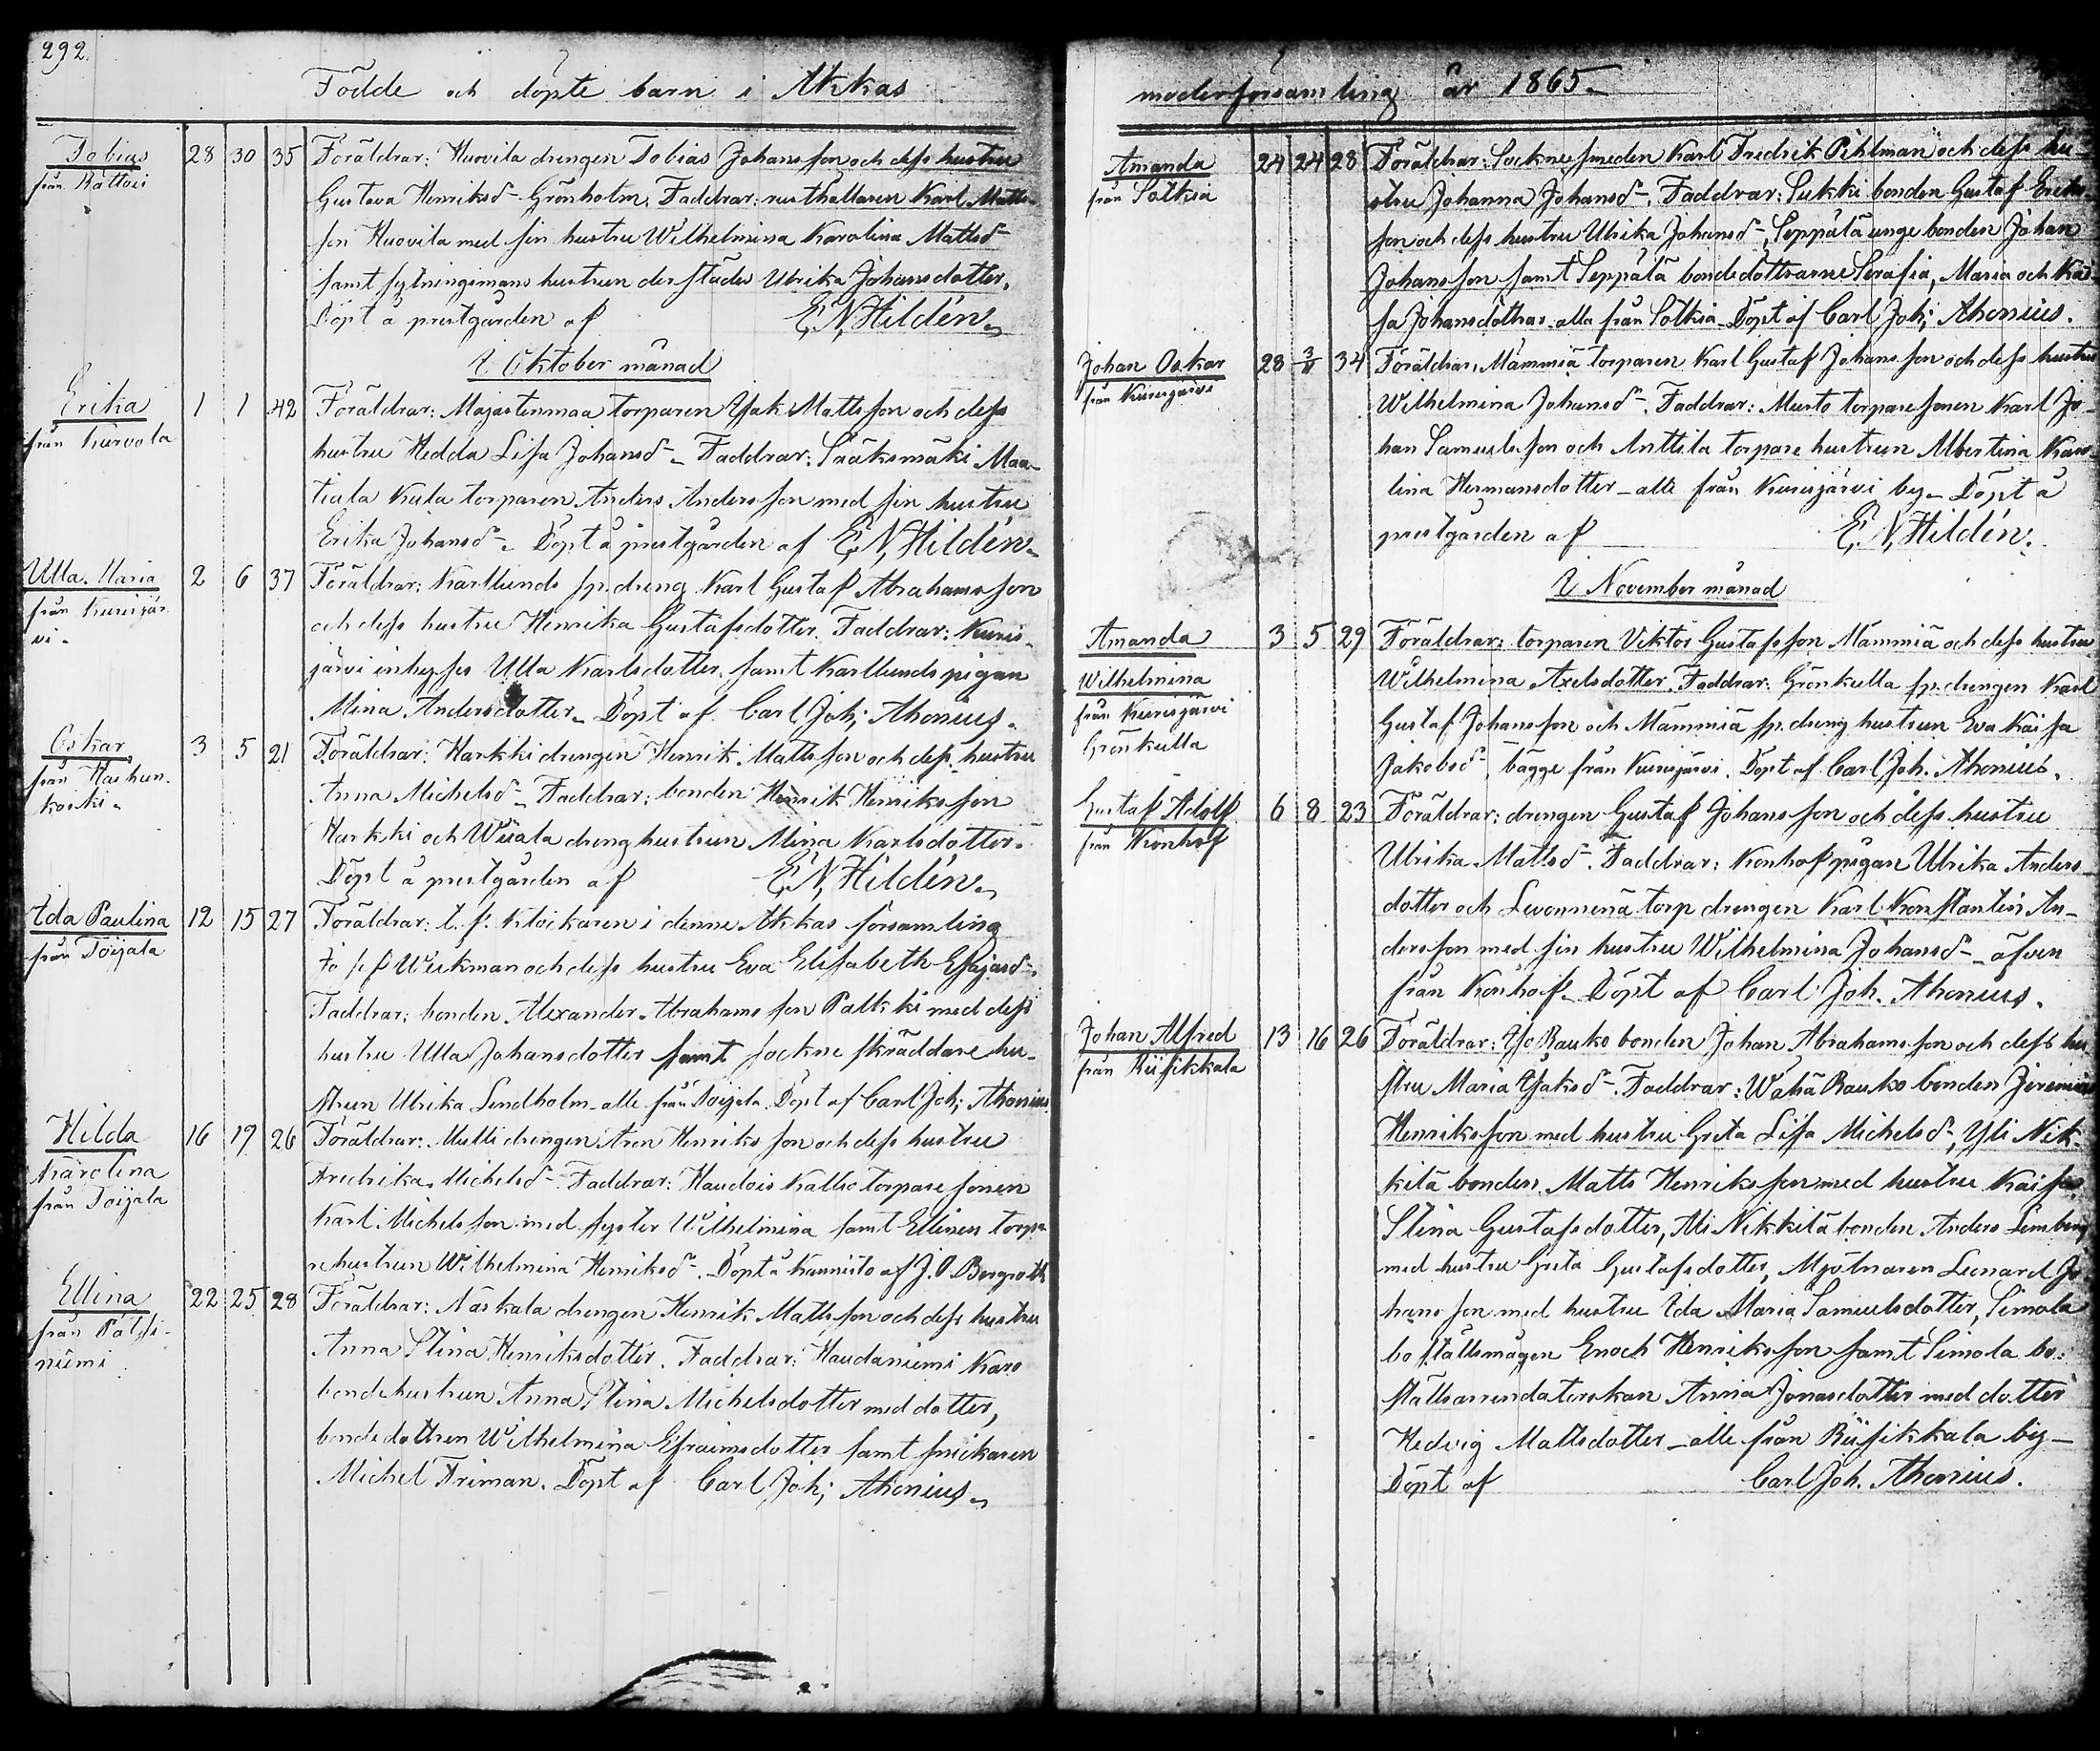 292.
Födde och döpte barn i Akkas
Tobias 28 30 35 Föräldrar: Huovila drengen Tobias Johansson och dess hustru
från Kattoi Gustava Henriksd- Grönholm. Faddrar: rusthållaren Karl Matts-
son Huovila med sin hustru Wilhelmina Karolina Mattsd-
samt fjärdingsmans hustrun derstädes Ulrika Johansdotter.
Döpt å prestgården af E. N. Hildén.
I Oktober månad
Erika 1 1 42 Föräldrar: Majastenmaa torparen Isak Mattsson och dess
från Kurvola hustru Hedda Lisa Johansd- Faddrar: Sääksmäki Maa-
tiala Kula torparen Anders Andersson med sin hustru
Erika Johansd-. Döpt å prestgården af E. N. Hildén.
Ulla Maria 2 6 37 Föräldrar: Karllunds sp. dreng Karl Gustaf Abrahamsson
från Kurisjär- och dess hustru Henrika Gustafsdotter. Faddrar: Kuris-
vi. järvi inhyses Ulla Karlsdotter, samt Karllunds pigan
Mina Andersdotter. Döpt af Carl Joh; Ahonius.
Oskar 3 5 21 Föräldrar: Harkki drengen Henrik Mattsson och dess hustru
från Haihun- Anna Michelsd-. Faddrar: bonden Henrik Henriksson
koski. Harkki och Wiiala dreng hustrun Mina Karlsdotter.
Döpt å prestgården af E. N. Hildén.
Ida Paulina 12 15 27 Föräldrar: t. f. Klockaren i denne Akkas församling
från Toijala Josef Wirkman och dess hustru Eva Elisabeth Esajasd-.
Faddrar: bonden Alexander Abrahamsson Palkki med dess
hustru Ulla Johansdotter samt sockne skräddare hu-
strun Ulrika Lindholm - alle från Toijala. Döpt af Carl Joh; Ahonius.
Hilda 16 19 26 Föräldrar: Mulli drengen Aron Henriksson och dess hustru
Karolina Fredrika Michelsd-. Faddrar: Haudois Kallio torpare sonen
från Toijala Karl Michelsson med syster Wilhelmina samt Ellinen torpa-
re hustrun Wilhelmina Henriksd-. Döpt å Kannisto af J. O. Bergroth
Ellina 22 25 28 Föräldrar: Naskala drengen Henrik Mattsson och dess hustru
från Pätsi- Anna Stina Henriksdotter. Faddrar: Haudaniemi Karo
niemi bondehustrun Anna Stina Michelsdotter med dotter,
bondedottren Wilhelmina Efraimsdotter samt snickaren
Michel Friman. Döpt af Carl Joh; Ahonius.
moderförsamling år 1865.
Amanda 24 24 28 Föräldrar: Sockne smeden Karl Fredrik Pihlman och dess hu-
från Sotkia stru Johanna Johansd-. Faddrar: Sukki bonden Gustaf Eriks-
son och dess hustru Ulrika Johansd-, Seppälä unge bonden Johan
Johansson samt Seppälä bondedöttrarne Serafia, Maria och Kai-
sa Johansdöttrar - alla från Sotkia - Döpt af Carl Joh; Ahonius.
Johan Oskar 28 3/11 34 Föräldrar: Mämmiä torparen Karl Gustaf Johansson och dess hustru
från Kurisjärvi Wilhelmina Johansd-. Faddrar: Musto torparesonen Karl Jo-
han Samuelsson och Anttila torpare hustrun Albertina Karo-
lina Hermansdotter - alle från Kurisjärvi by. Döpt å
prestgården af E. N. Hildén.
I November månad
Amanda 3 5 29 Föräldrar: torparen Viktor Gustafsson Mämmiä och dess hustru
Wilhelmina Wilhelmina Axelsdotter. Faddrar: Grönkulla sp. drengen Karl
från Kurisjärvi Gustaf Johansson och Mämmiä sp. dreng hustrun Eva Kaisa
Grönkulla Jakobsd-, bägge från Kurisjärvi. Döpt af Carl Joh. Ahonius.
Gustaf Adolf 6 8 23 Föräldrar: drengen Gustaf Johansson och dess hustru
från Kronhof Ulrika Mattsd-. Faddrar: Kronhof pigan Ulrika Anders-
dotter och torp drengen Karl Konstantin An-
dersson med sin hustru Wilhelmina Johansd- - äfven
från Kronhof. Döpt af Carl Joh. Ahonius.
Johan Alfred 13 16 26 Föräldrar: Iso Rauko bonden Johan Abrahamsson och dess hu-
från Riisikkala stru Maria Isaksd-. Faddrar: Wähä Rauko bonden Jeremias
Henriksson med hustru Greta Lisa Michelsd-, Yli Nik-
kilä bonden Matts Henriksson med hustru Kaisa
Stina Gustafsdotter, Ali Nikkilä bonden Anders Limberg
med hustru Greta Gustafsdotter, Mjölnaren Leonard Jo-
hansson med hustru Ida Maria Samuelsdotter, Simola
boställsmågen Enoch Henriksson samt Simola bo-
ställsarrendatorskan Anna Jonasdotter med dotter
Hedvig Mattsdotter - alle från Riisikkala by -
Döpt af Carl Joh. Ahonius.